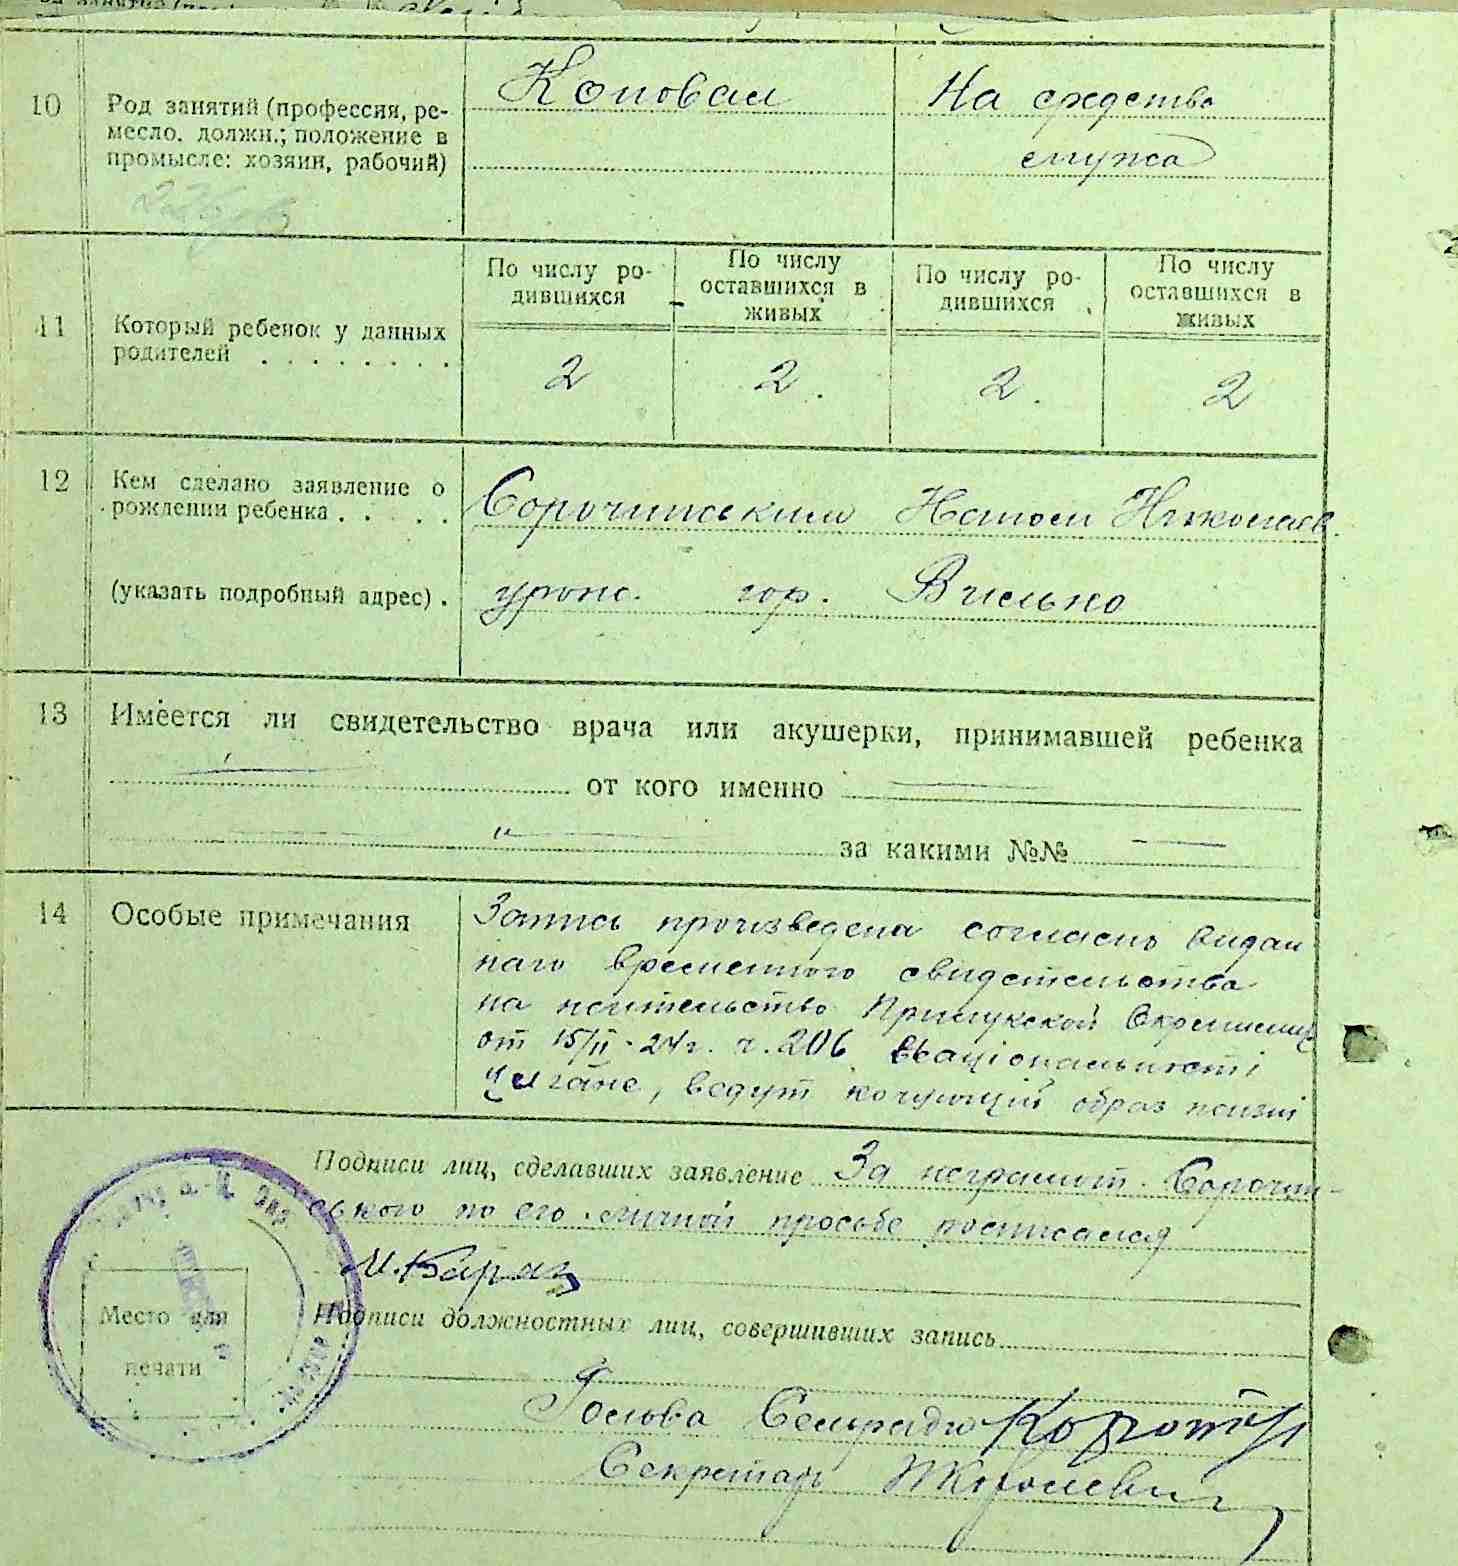 10
Род занятий (профессия, ре-
месло, должн.; положение в
промысле: хозяин, рабочий)
Коновал
На средства
мужа
11
Который ребенок у данных
родителей . . . . . . . .
По числу ро-
дившихся
По числу
оставшихся в
живых
По числу ро-
дившихся
По числу
оставшихся в
живых
2
2.
2.
2
12
Кем сделано заявление о
рождении ребенка . . . .
(указать подробный адрес) .
Сорочинським Николаев.
урож. гор. Вильно
13
Имеется ли свидетельство врача или акушерки, принимавшей ребенка
от кого именно
за какими №№
14
Особые примечания
Запись произведена согласно видан
наго временного свидетельства
на жительство Прилукской
от 15/II - 24 г. ч. 206
цигане, ведут кочующий образ жизні
Подписи лиц, сделавших заявление За неграмот. Сорочин-
ського по его личной просьбе росписался
Место для
печати
Подписи должностных лиц, совершивших запись
Голова Сельради
Секретарь